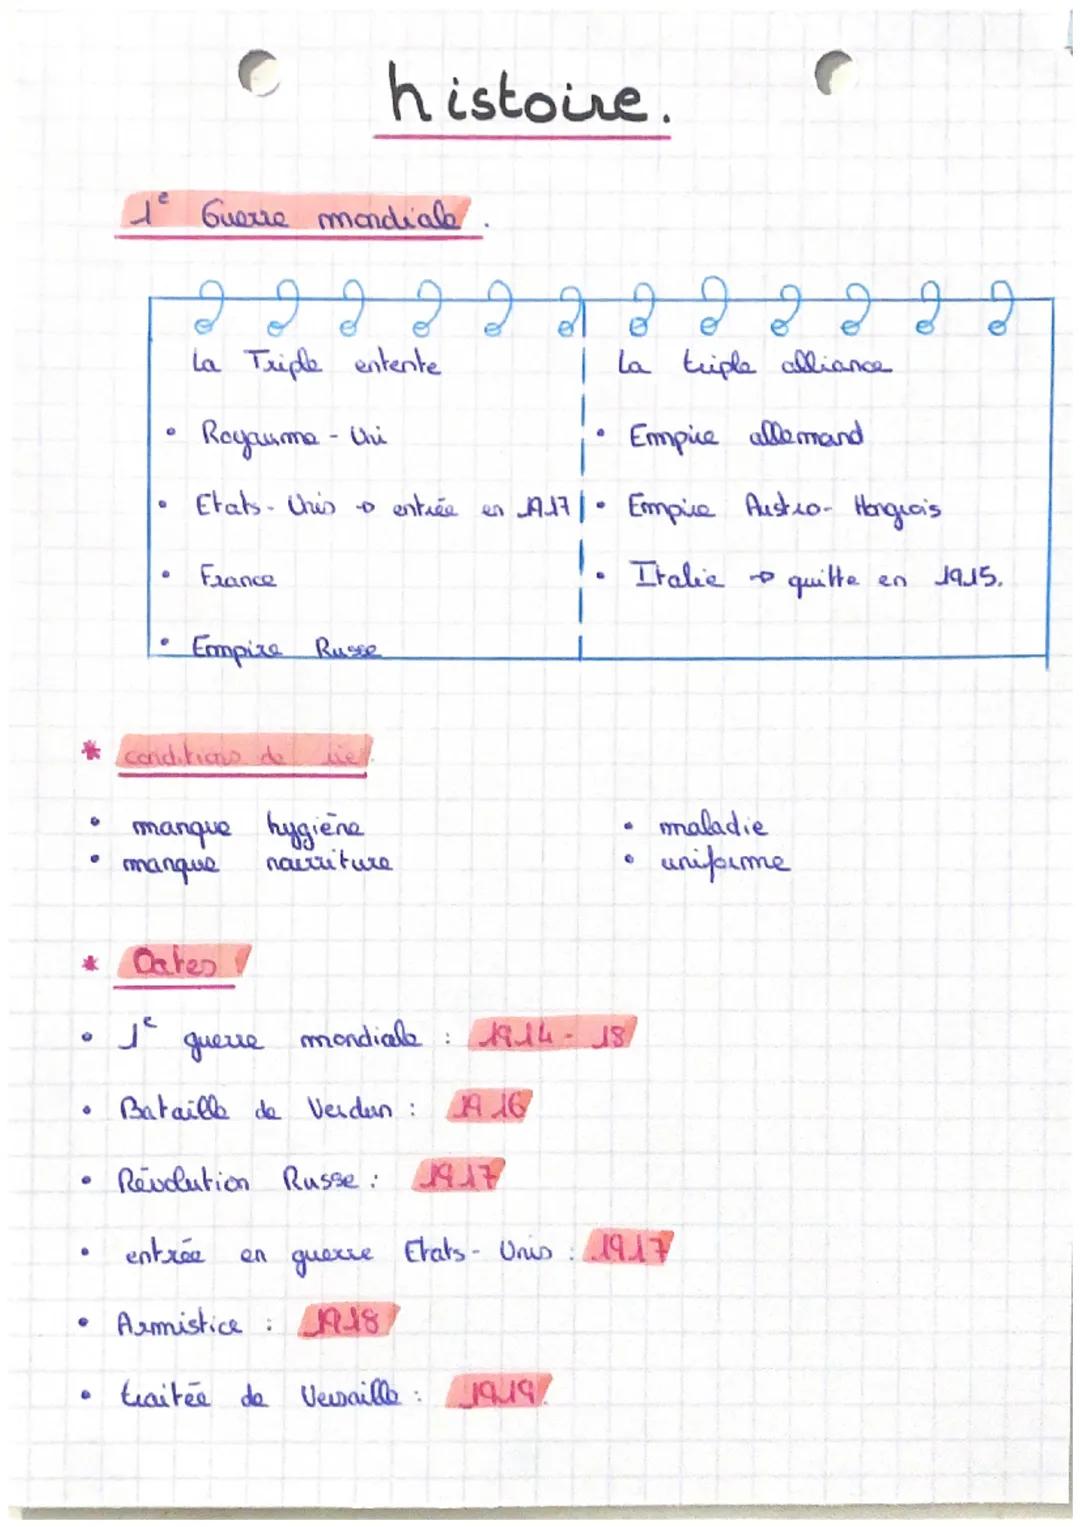 histoire.
1e Guerre mondiale.
La Triple entente
• Royaume-Uni
• Etats-Unis → entrée en 1917
• France
• Empire Russe
La triple alliance
• Empire allemand
• Empire Austro-Hongrois
• Italie → quitte en 1915.
* conditions de vie.
• manque hygiène
• manque nourriture
• maladie
• uniforme
* Dates
• 1e guerre mondiale : 1914-18
• Bataille de Verdun : 1916
• Révolution Russe : 1917
• entrée en guerre Etats-Unis : 1917
• Armistice : 1918
• traitée de Versaille : 1919.